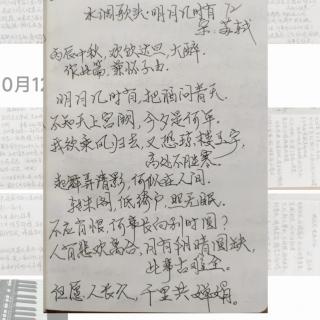 水调歌头·明月几时有
宋·苏轼
丙辰中秋，欢饮达旦，大醉，
作此篇，兼怀子由。
明月几时有，把酒问青天。
不知天上宫阙，今夕是何年。
我欲乘风归去，又恐琼楼玉宇，
高处不胜寒。
起舞弄清影，何似在人间。
转朱阁，低绮户，照无眠。
不应有恨，何事长向别时圆？
人有悲欢离合，月有阴晴圆缺，
此事古难全。
但愿人长久，千里共婵娟。
0月12